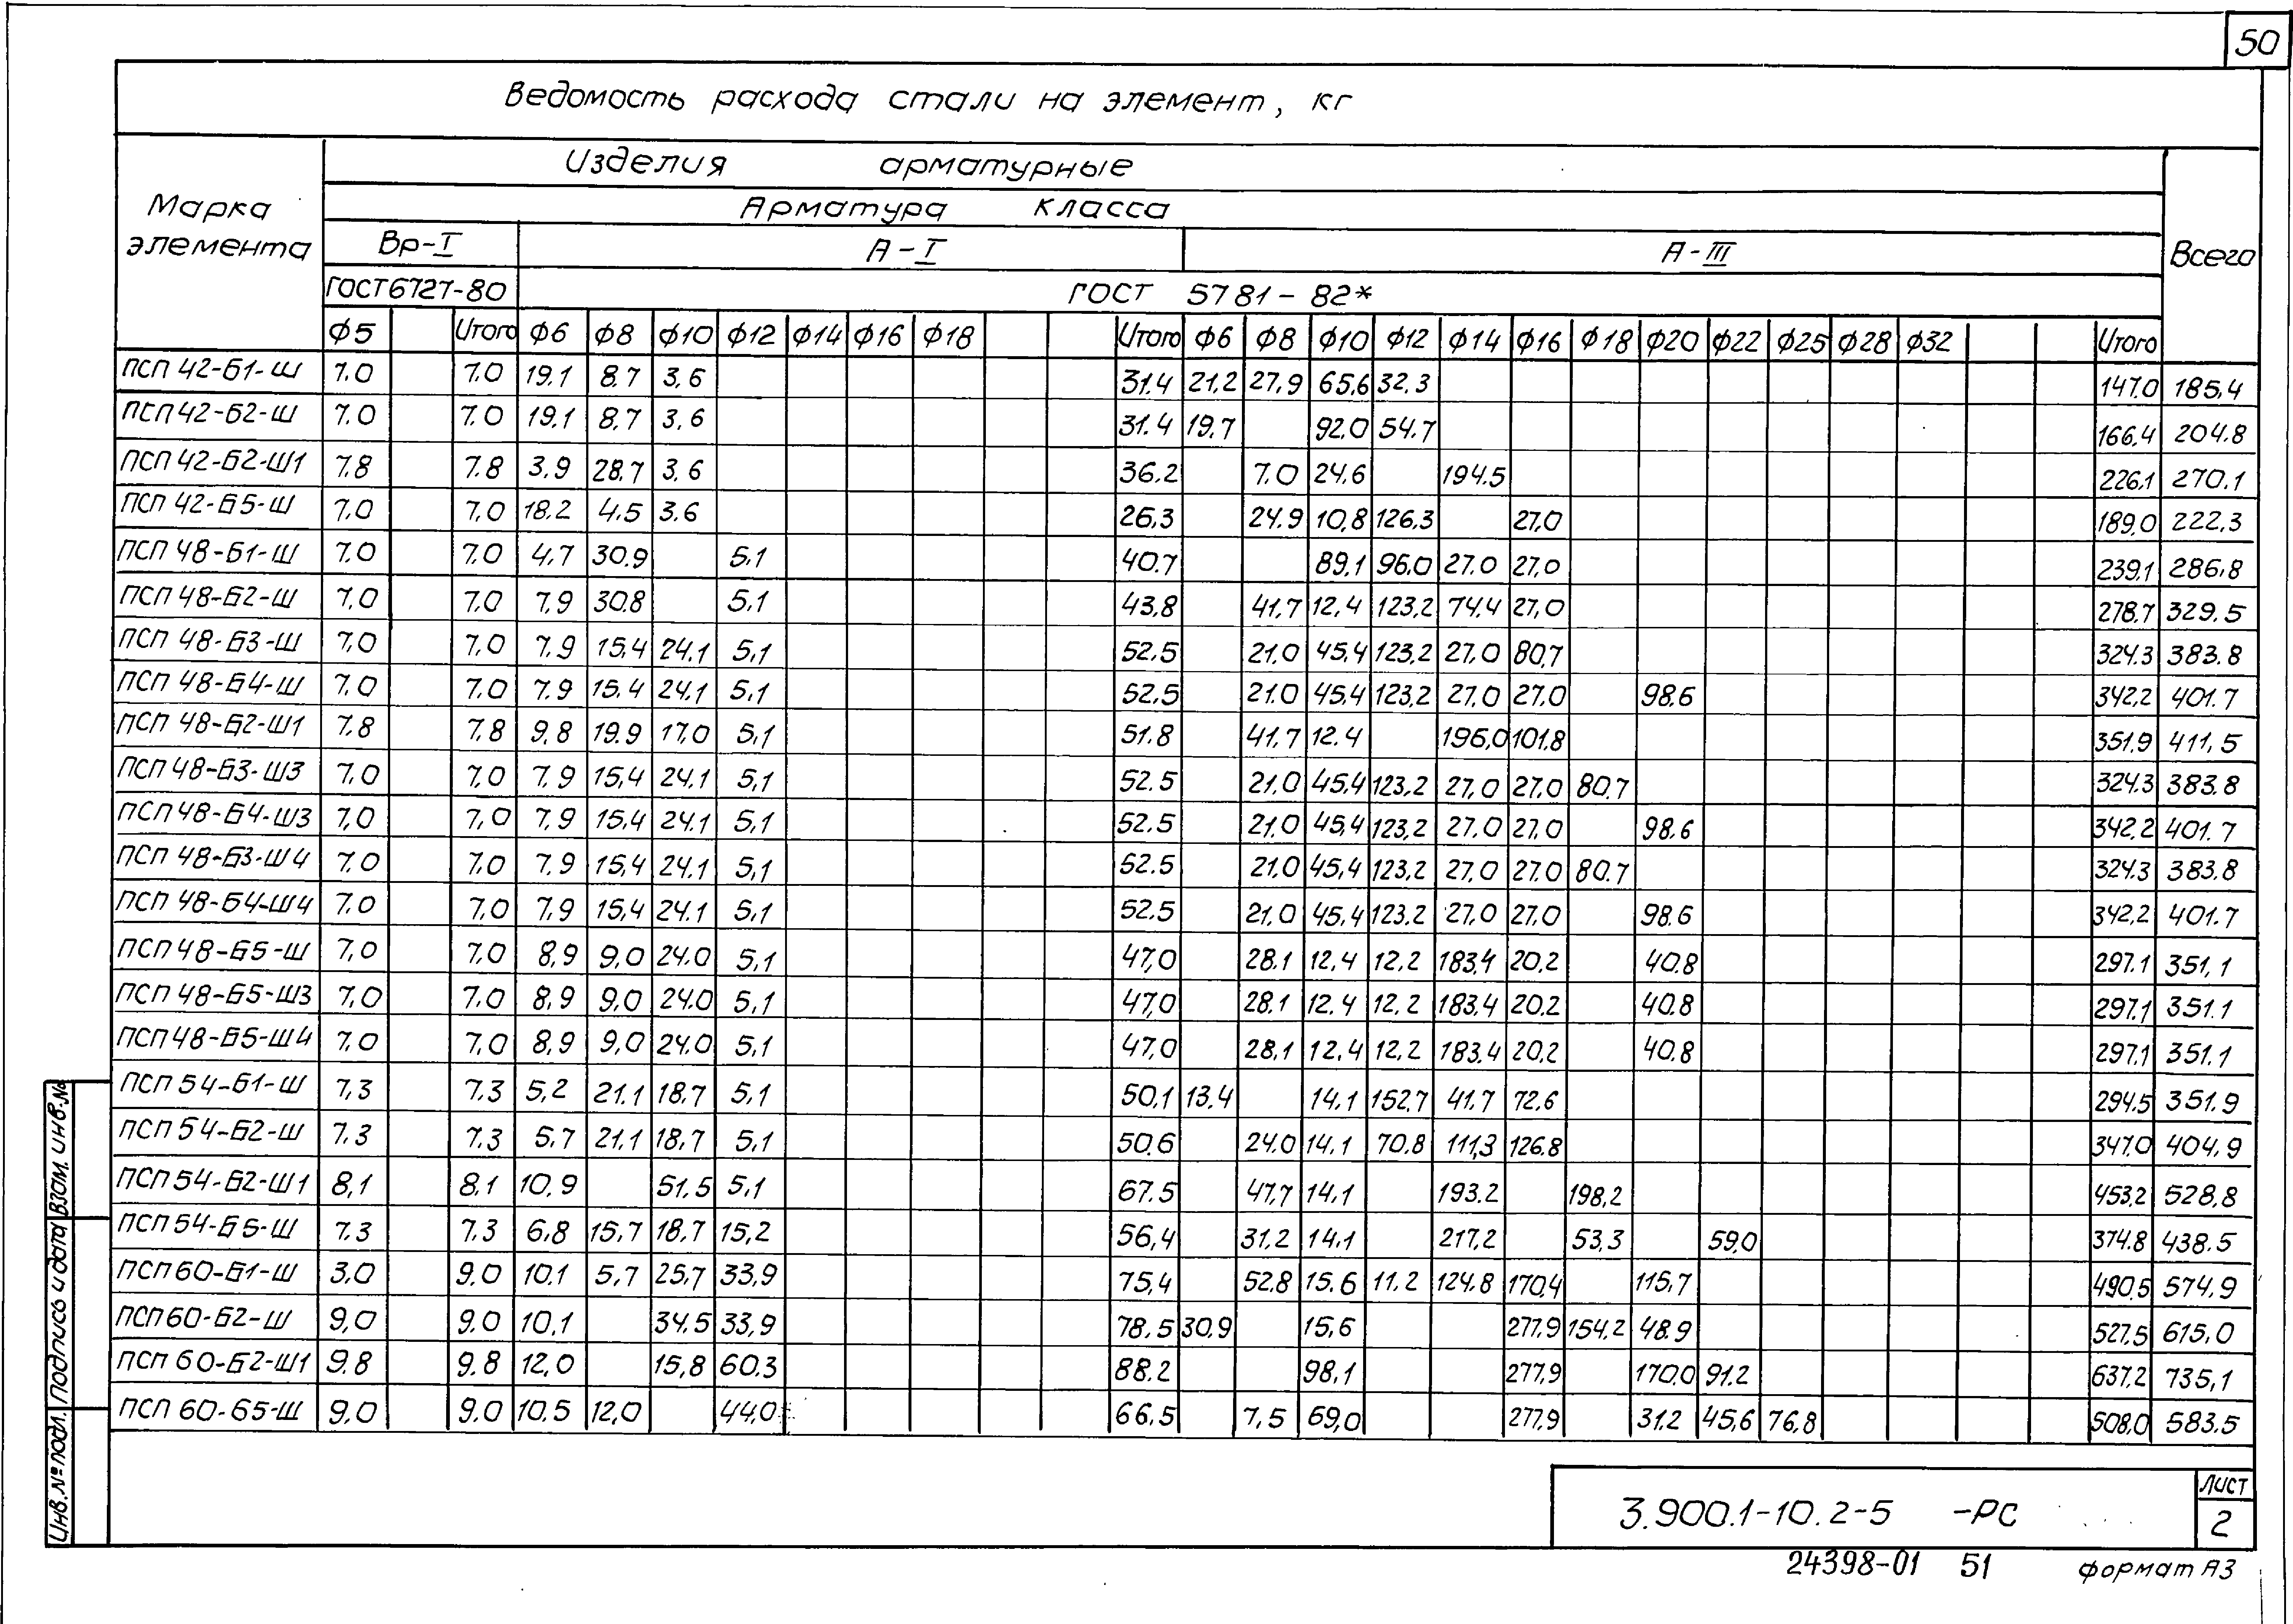 50
Ведомость расхода стали на элемент, кг
Марка элемента
Изделия арматурные
Всего
Арматура класса
Вр-I А-I А-III
ГОСТ 6727-80 ГОСТ 5781-82*
Ф5 Итого Ф6 Ф8 Ф10 Ф12 Ф14 Ф16 Ф18 Итого Ф6 Ф8 Ф10 Ф12 Ф14 Ф16 Ф18 Ф20 Ф22 Ф25 Ф28 Ф32 Итого
ПСП 42-Б1-Ш 7.0 7.0 19.1 8.7 3.6 31.4 21.2 27.9 65.6 32.3 147.0 185.4
ПСП 42-Б2-Ш 7.0 7.0 19.1 8.7 3.6 31.4 19.7 92.0 54.7 166.4 204.8
ПСП 42-Б2-Ш1 7.8 7.8 3.9 28.7 3.6 36.2 7.0 24.6 194.5 226.1 270.1
ПСП 42-Б5-Ш 7.0 7.0 18.2 4.5 3.6 26.3 24.9 10.8 126.3 27.0 189.0 222.3
ПСП 48-Б1-Ш 7.0 7.0 4.7 30.9 5.1 40.7 89.1 96.0 27.0 27.0 239.1 286.8
ПСП 48-Б2-Ш 7.0 7.0 7.9 30.8 5.1 43.8 41.7 12.4 123.2 74.4 27.0 278.7 329.5
ПСП 48-Б3-Ш 7.0 7.0 7.9 15.4 24.1 5.1 52.5 21.0 45.4 123.2 27.0 80.7 324.3 383.8
ПСП 48-Б4-Ш 7.0 7.0 7.9 15.4 24.1 5.1 52.5 21.0 45.4 123.2 27.0 27.0 98.6 342.2 401.7
ПСП 48-Б2-Ш1 7.8 7.8 9.8 19.9 17.0 5.1 51.8 41.7 12.4 196.0 101.8 351.9 411.5
ПСП 48-Б3-Ш3 7.0 7.0 7.9 15.4 24.1 5.1 52.5 21.0 45.4 123.2 27.0 27.0 80.7 324.3 383.8
ПСП 48-Б4-Ш3 7.0 7.0 7.9 15.4 24.1 5.1 52.5 21.0 45.4 123.2 27.0 27.0 98.6 342.2 401.7
ПСП 48-Б3-Ш4 7.0 7.0 7.9 15.4 24.1 5.1 52.5 21.0 45.4 123.2 27.0 27.0 80.7 324.3 383.8
ПСП 48-Б4-Ш4 7.0 7.0 7.9 15.4 24.1 5.1 52.5 21.0 45.4 123.2 27.0 27.0 98.6 342.2 401.7
ПСП 48-Б5-Ш 7.0 7.0 8.9 9.0 24.0 5.1 47.0 28.1 12.4 12.2 183.4 20.2 40.8 297.1 351.1
ПСП 48-Б5-Ш3 7.0 7.0 8.9 9.0 24.0 5.1 47.0 28.1 12.4 12.2 183.4 20.2 40.8 297.1 351.1
ПСП 48-Б5-Ш4 7.0 7.0 8.9 9.0 24.0 5.1 47.0 28.1 12.4 12.2 183.4 20.2 40.8 297.1 351.1
ПСП 54-Б1-Ш 7.3 7.3 5.2 21.1 18.7 5.1 50.1 13.4 14.1 152.7 41.7 72.6 294.5 351.9
ПСП 54-Б2-Ш 7.3 7.3 5.7 21.1 18.7 5.1 50.6 24.0 14.1 70.8 111.3 126.8 347.0 404.9
ПСП 54-Б2-Ш1 8.1 8.1 10.9 51.5 5.1 67.5 47.7 14.1 193.2 198.2 453.2 528.8
ПСП 54-Б5-Ш 7.3 7.3 6.8 15.7 18.7 15.2 56.4 31.2 14.1 217.2 53.3 59.0 374.8 438.5
ПСП 60-Б1-Ш 3.0 9.0 10.1 5.7 25.7 33.9 75.4 52.8 15.6 11.2 124.8 170.4 115.7 490.5 574.9
ПСП 60-Б2-Ш 9.0 9.0 10.1 34.5 33.9 78.5 30.9 15.6 277.9 154.2 48.9 527.5 615.0
ПСП 60-Б2-Ш1 9.8 9.8 12.0 15.8 60.3 88.2 98.1 277.9 170.0 91.2 637.2 735.1
ПСП 60-Б5-Ш 9.0 9.0 10.5 12.0 44.0 66.5 7.5 69.0 277.9 31.2 45.6 76.8 508.0 583.5
Инв.№ подл. Подпись и дата Взам. инв.№
3.900.1-10.2-5 -РС
Лист
2
24398-01 51 формат А3